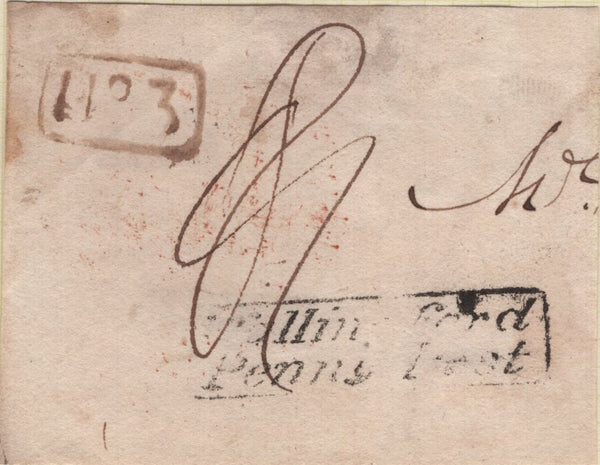 No 3
Mr.
Wallingford
Penny Post